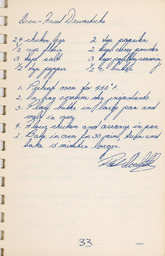 Oven-Fried Drumsticks
24 chicken legs
2 tsp paprika
1/2 cup flour
2 tsp chili powder
3 tsp salt
3 tsp poultry seasoning
1/2 tsp pepper
1. Preheat oven for 450°.
2. In bag combine dry ingredients
3. Place butter in large pan and
melt in oven
4. Flour chicken and arrange in pan
5. Bake in oven for 30 min, turn and
bake 15 minutes longer.
33